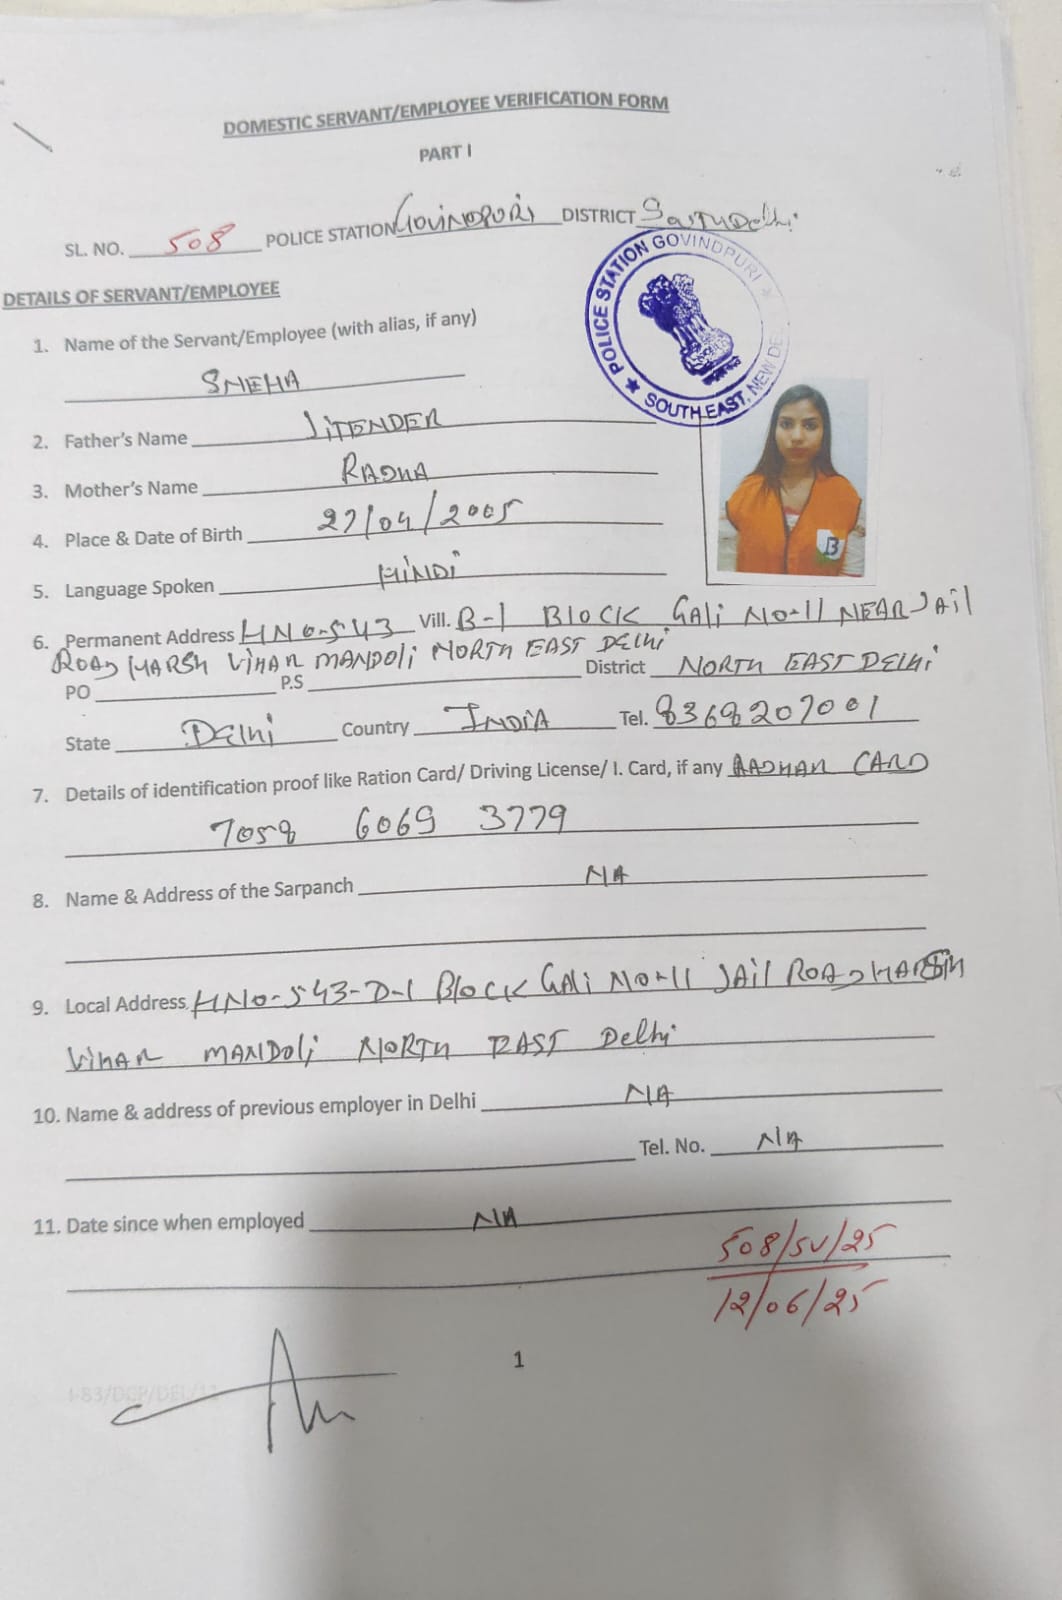 DOMESTIC SERVANT/EMPLOYEE VERIFICATION FORM
PART I
SL. NO. 508 POLICE STATION GOVINDPURI DISTRICT South Delhi
POLICE STATION GOVINDPURI
SOUTH EAST, NEW DE
DETAILS OF SERVANT/EMPLOYEE
1. Name of the Servant/Employee (with alias, if any)
SNEHA
2. Father's Name JiTENDER
3. Mother's Name RADHA
4. Place & Date of Birth 27/04/2005
5. Language Spoken HiNDi
B
6. Permanent Address HNO-543 Vill. B-1 BLOCK Gali No-11 NEAR JAil
ROAD HARSH VIHAR MANDOLi NORTH EAST DElhi
PO P.S District NORTH EAST DELHi
State Delhi Country INDiA Tel. 8368207001
7. Details of identification proof like Ration Card/ Driving License/ I. Card, if any AADHAR CARD
7058 6069 3779
8. Name & Address of the Sarpanch NA
9. Local Address HNO-543-D-1 Block Gali No-11 JAil ROAD HARSH
ViHAR MANDOli NORTH EAST Delhi
10. Name & address of previous employer in Delhi NA
Tel. No. NA
11. Date since when employed NA
508/SV/25
12/06/25
1